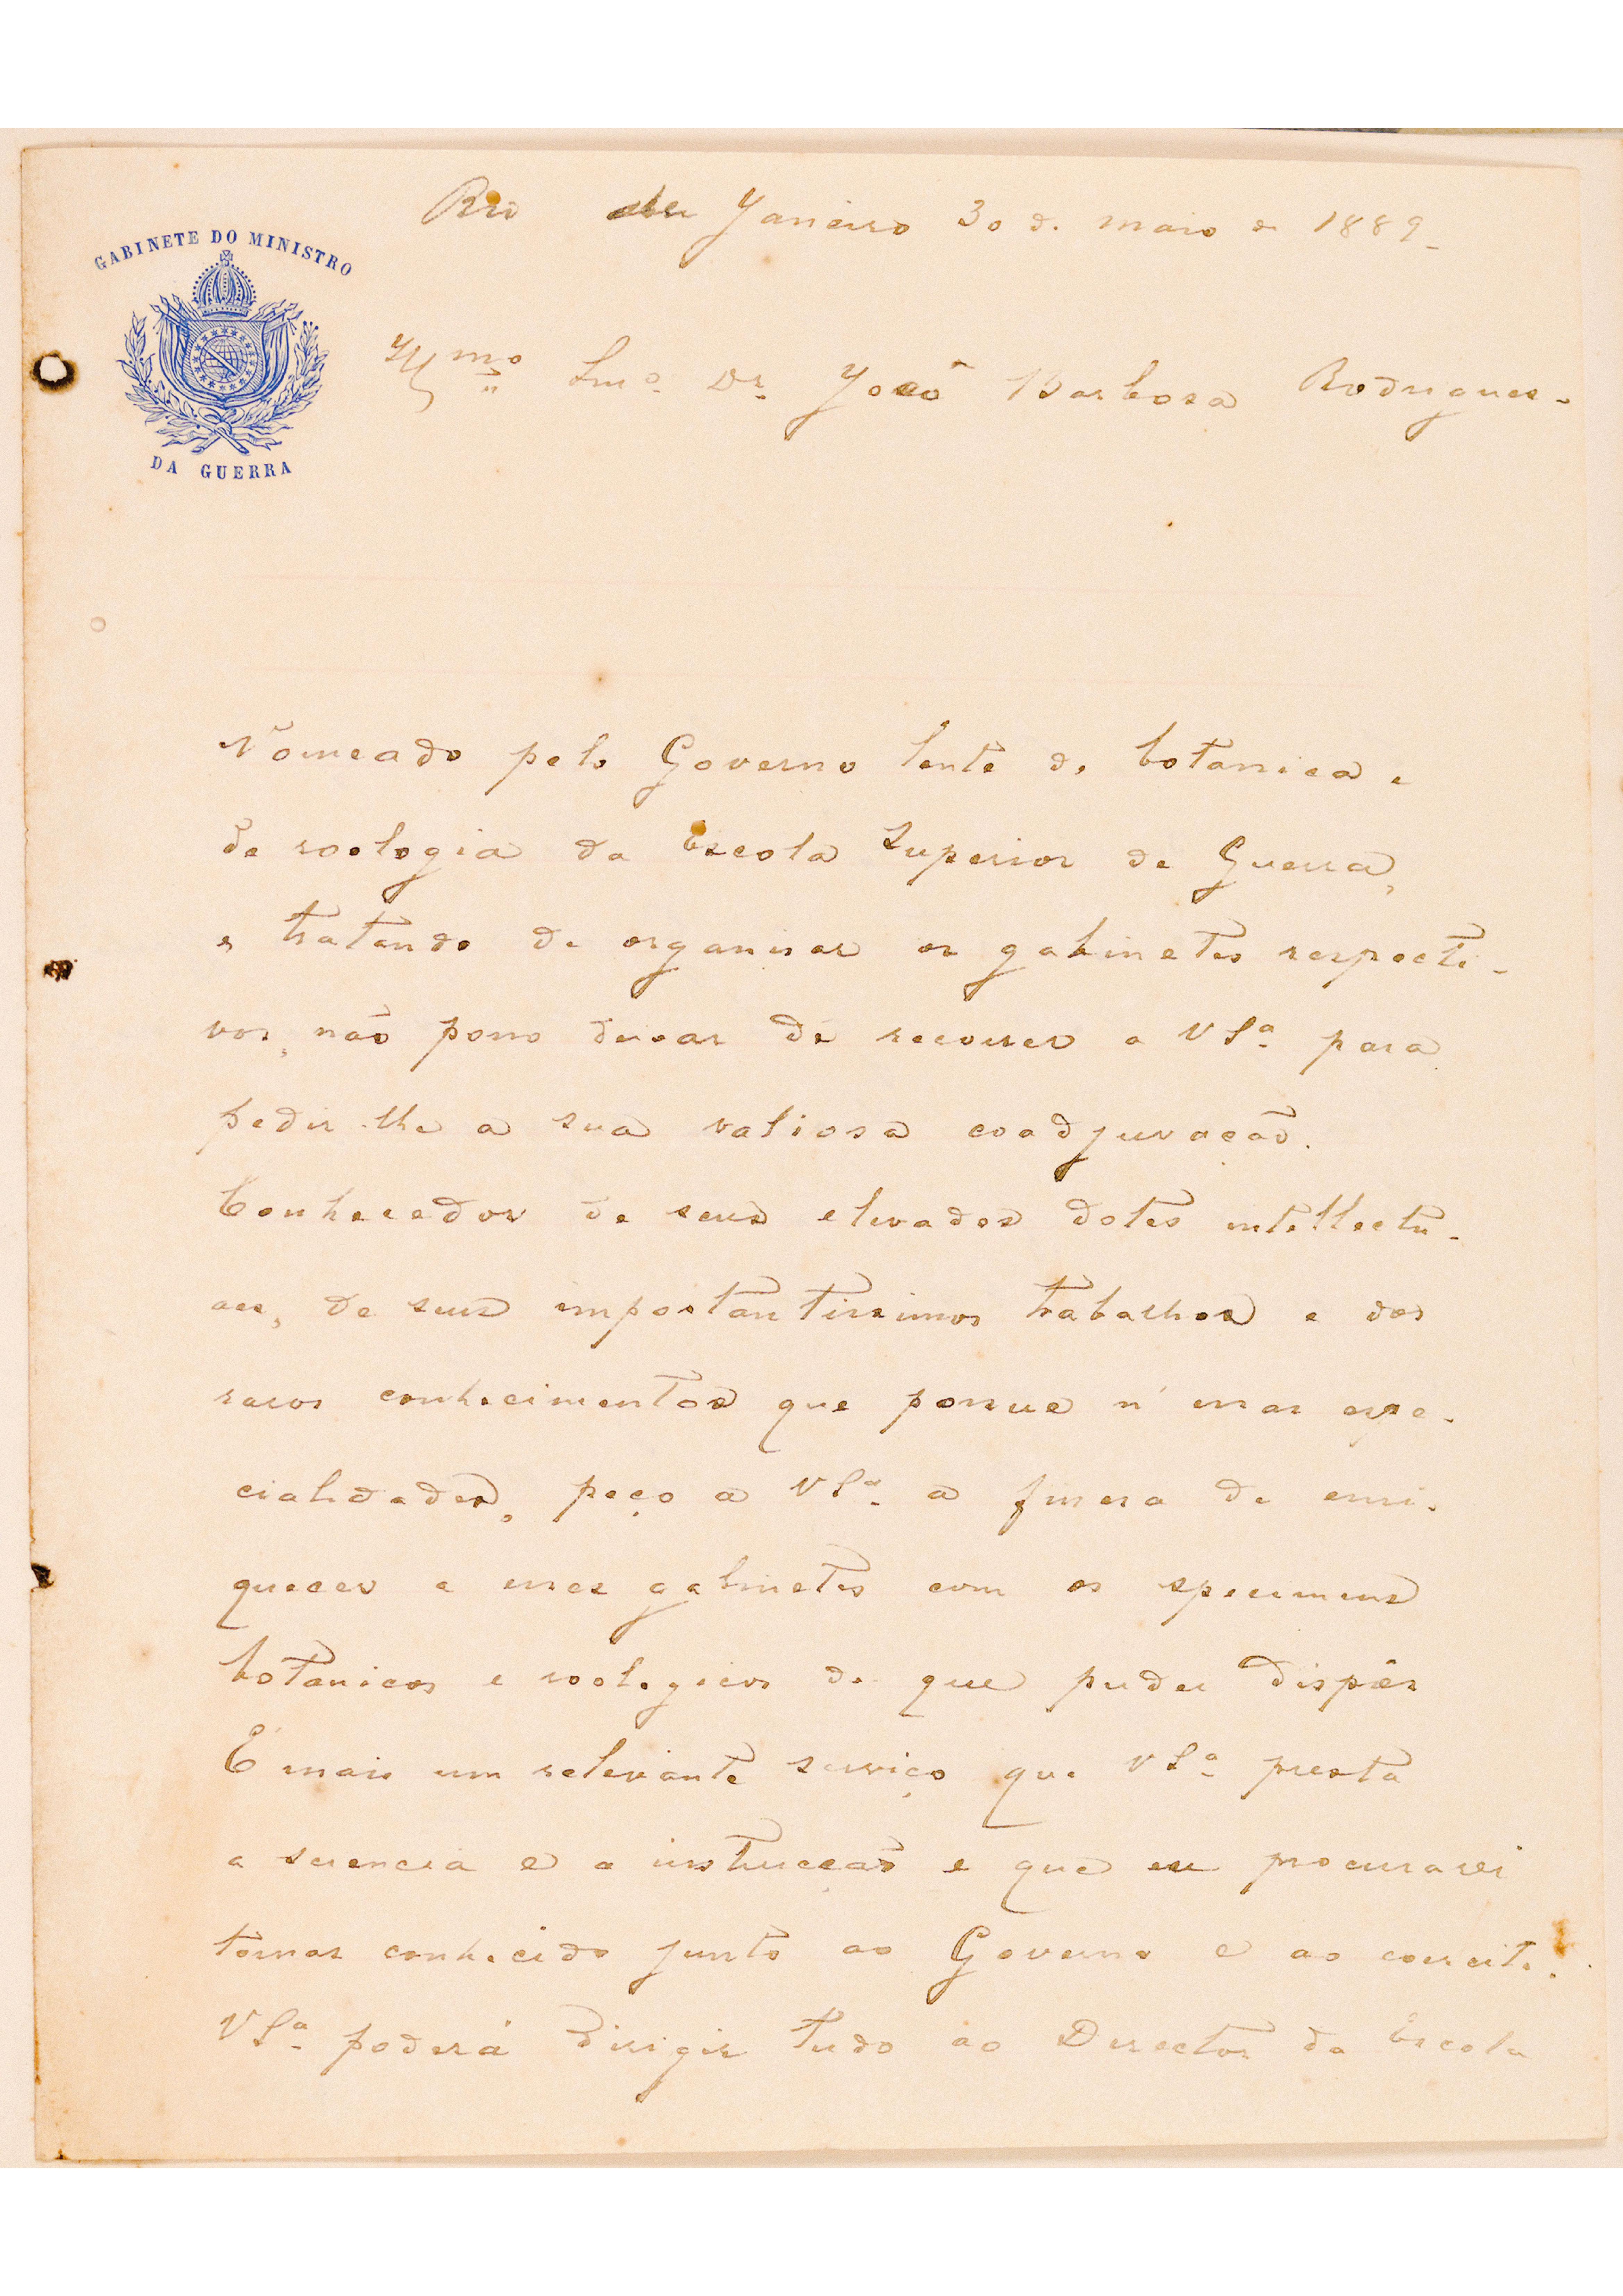 GABINETE DO MINISTRO
DA GUERRA
Rio de Janeiro 30 de maio de 1889.
Illmo Snro. Dr. João Barbosa Rodrigues.
Nomeado pelo Governo lente de botanica e
de zoologia da Escola Superior de Guerra,
e tratando de organisar os gabinetes respecti-
vos, não posso deixar de recorrer a VSa. para
pedir-lhe a sua valiosa coadjuvação.
Conhecedor de seus elevados dotes intellectu-
aes, de seus importantissimos trabalhos e dos
raros conhecimentos que possue n'essas espe-
cialidades, peço a VSa. a fineza de enri-
quecer a esses gabinetes com os specimens
botanicos e zoologicos de que puder dispôr
É mais um relevante serviço que VSa. presta
a sciencia e a instrucção e que eu procurarei
tornar conhecido junto ao Governo e ao exercito.
VSa. poderá dirigir tudo ao Director da Escola